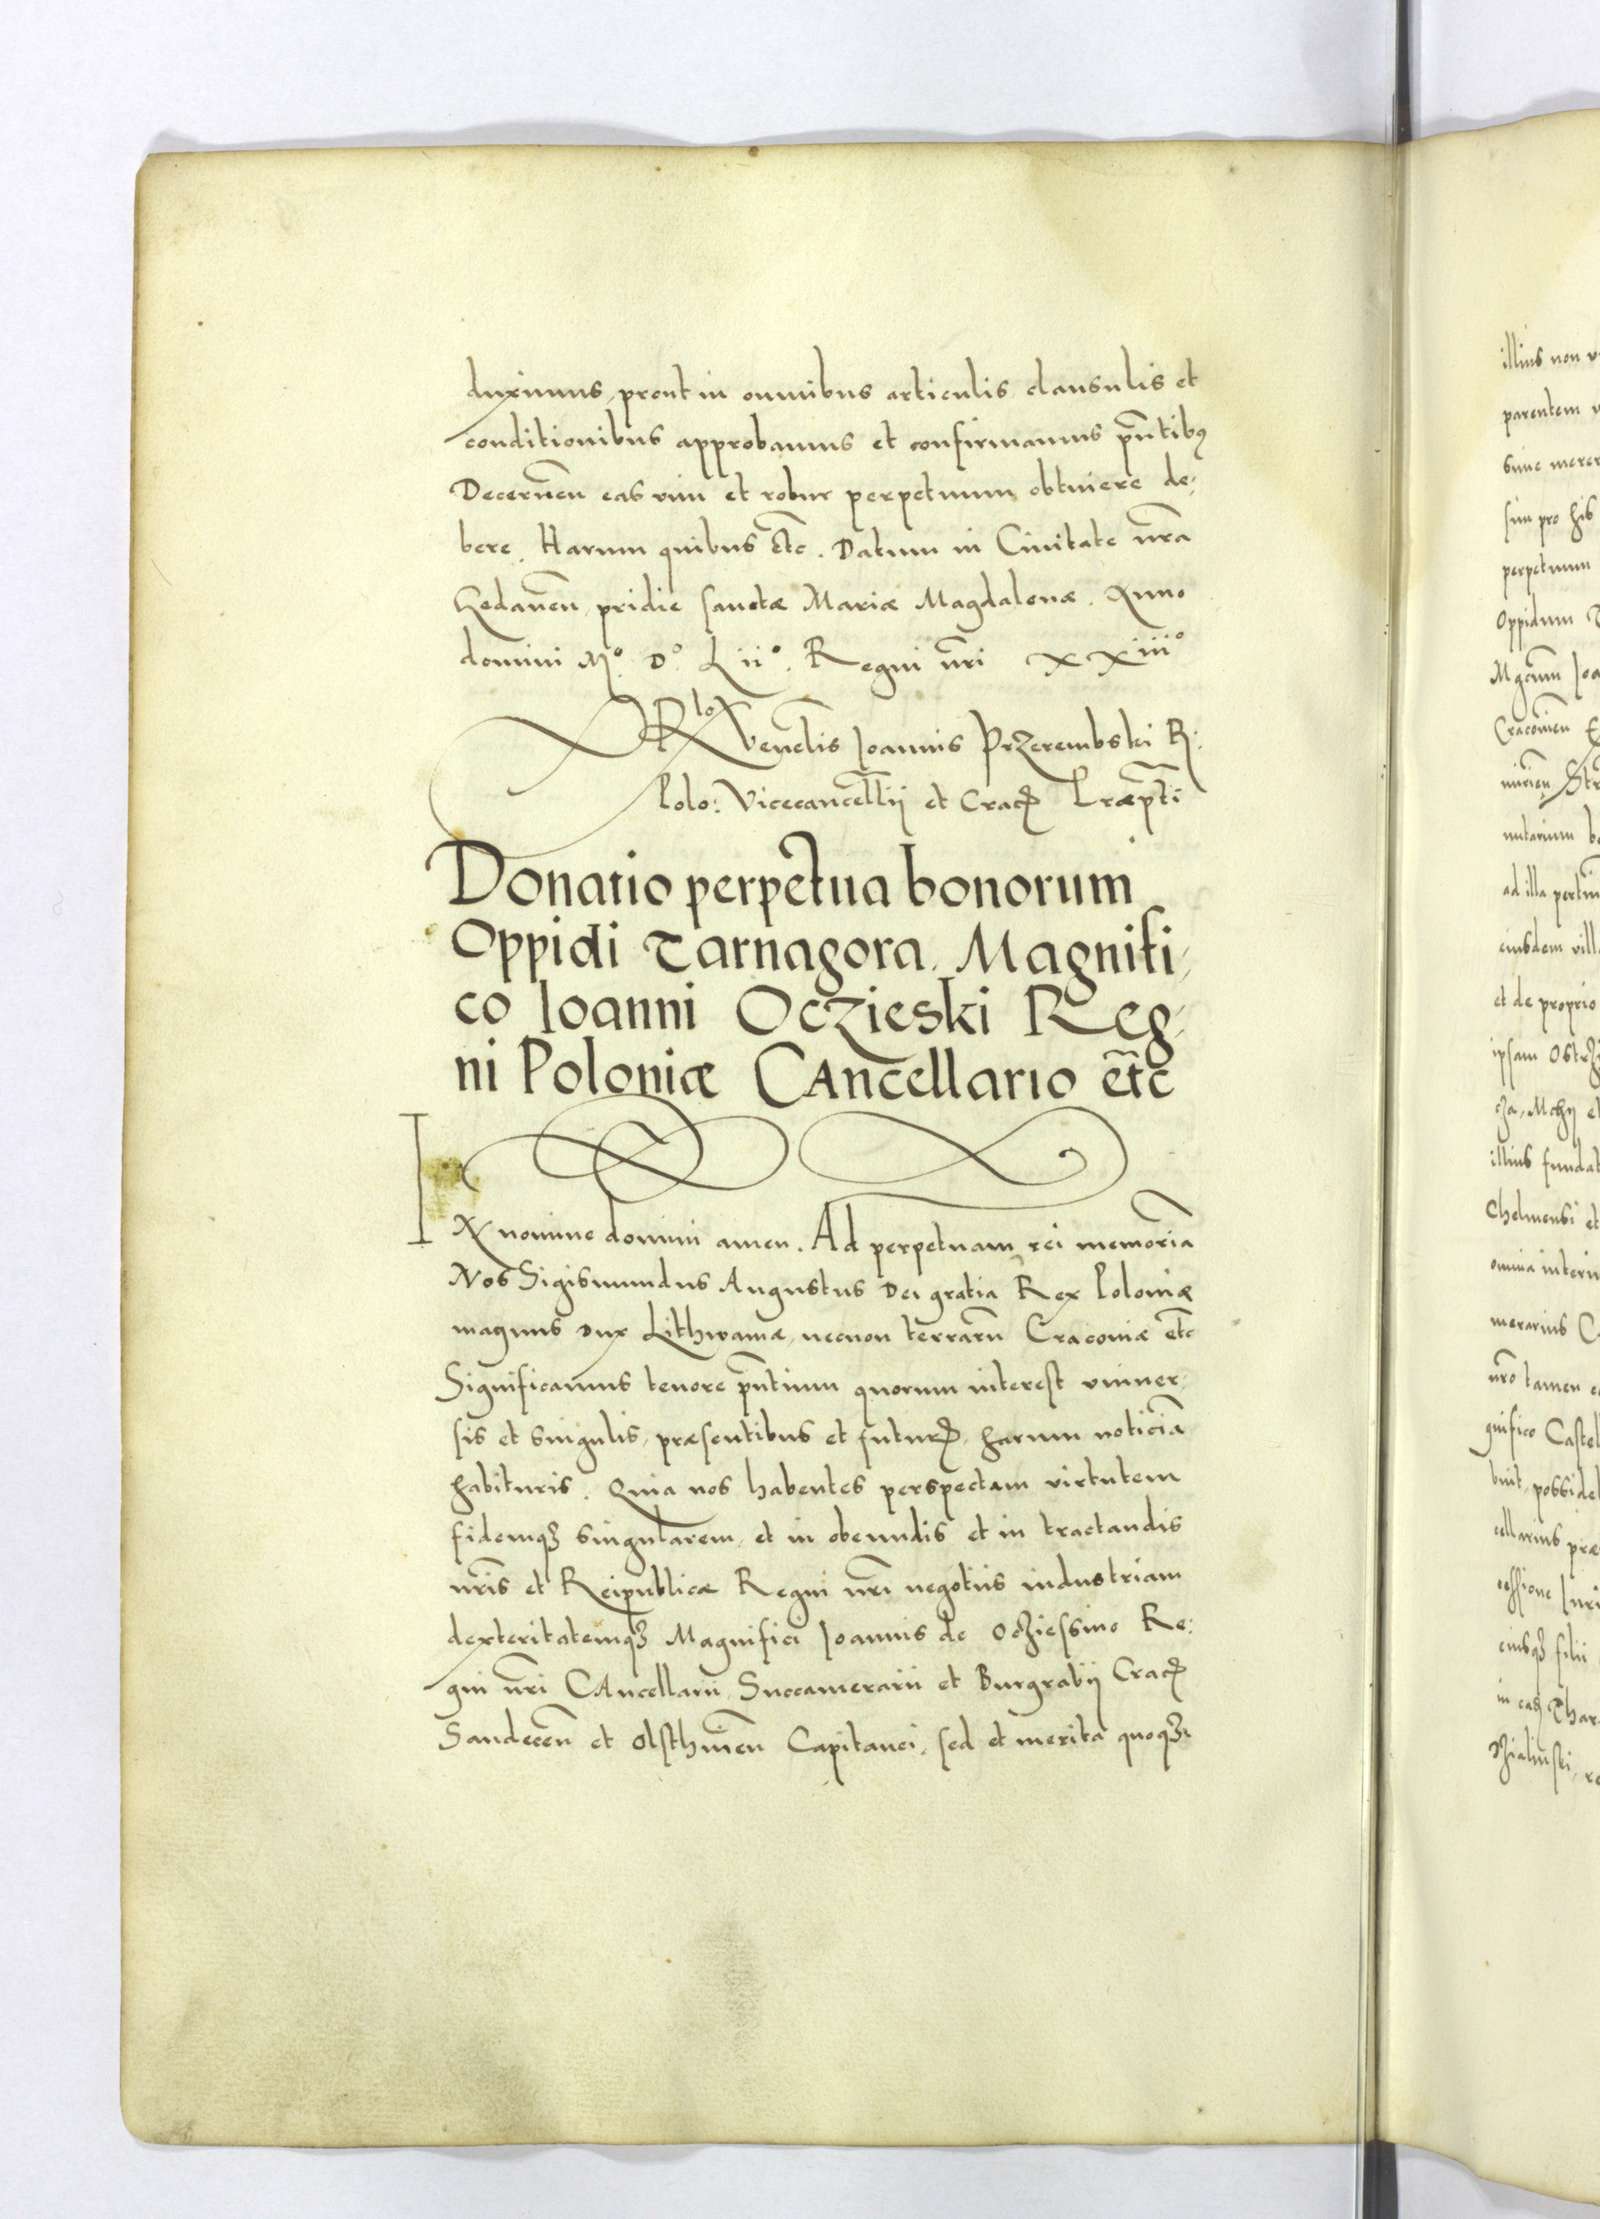 duximus, prout in omnibus articulis clausulis et
conditionibus approbamus et confirmamus pñtibus
Decerneñ eas vim et robur perpetuum obtinere de,
bere. Harum quibus etc̃. Datum in Ciuitate nr̃a
Gedaneñ pridie sanctæ Mariæ Magdalenæ. Anno
domini Mº. Dº. Liiº. Regni nr̃i XXiiiº
Rlo Veneblis Ioannis Przerembski R:
Polo: Vicecancellij et Crac Præpti
Donatio perpetua bonorum
Oppidi Tarnagora. Magnifi,
co Ioanni Oczieski Reg,
ni Poloniæ CAncellario etc̃
IN nomine domini amen. Ad perpetuam rei memoriã
Nos Sigismundus Augustus Dei gratia Rex Poloniæ
magnus Dux Lithwaniæ, necnon terrarũ Cracoviæ etc̃
Significamus tenore pñtium quorum interest vniuer,
sis et singulis, præsentibus et futur, harum noticiã
habituris. Quia nos habentes perspectam virtutem
fidemqꝫ singularem, et in obeundis et in tractandis
nr̃is et Reipublicæ Regni nr̃i negotiis industriam
dexteritatemqꝫ Magnifici Ioannis de Ocziessino Re:
gni nr̃i CAncellarii, Succamerarii et Burgrabij Crac
Sandeceñ et Olsthineñ Capitanei, sed et merita quoqꝫ
illius non
parentem
siue
sim pro his
perpetuum
Oppidum
Mgcum Ioa
Cracovieñ
ad illa
eiusdem vill
et de proprio
ipsam
illius fundat
Chelmensi et
omnia
merarius
nr̃o tamen
gnifico Castel
buit, posside
cellarius præ
cessione Iuri
eiusqꝫ filii